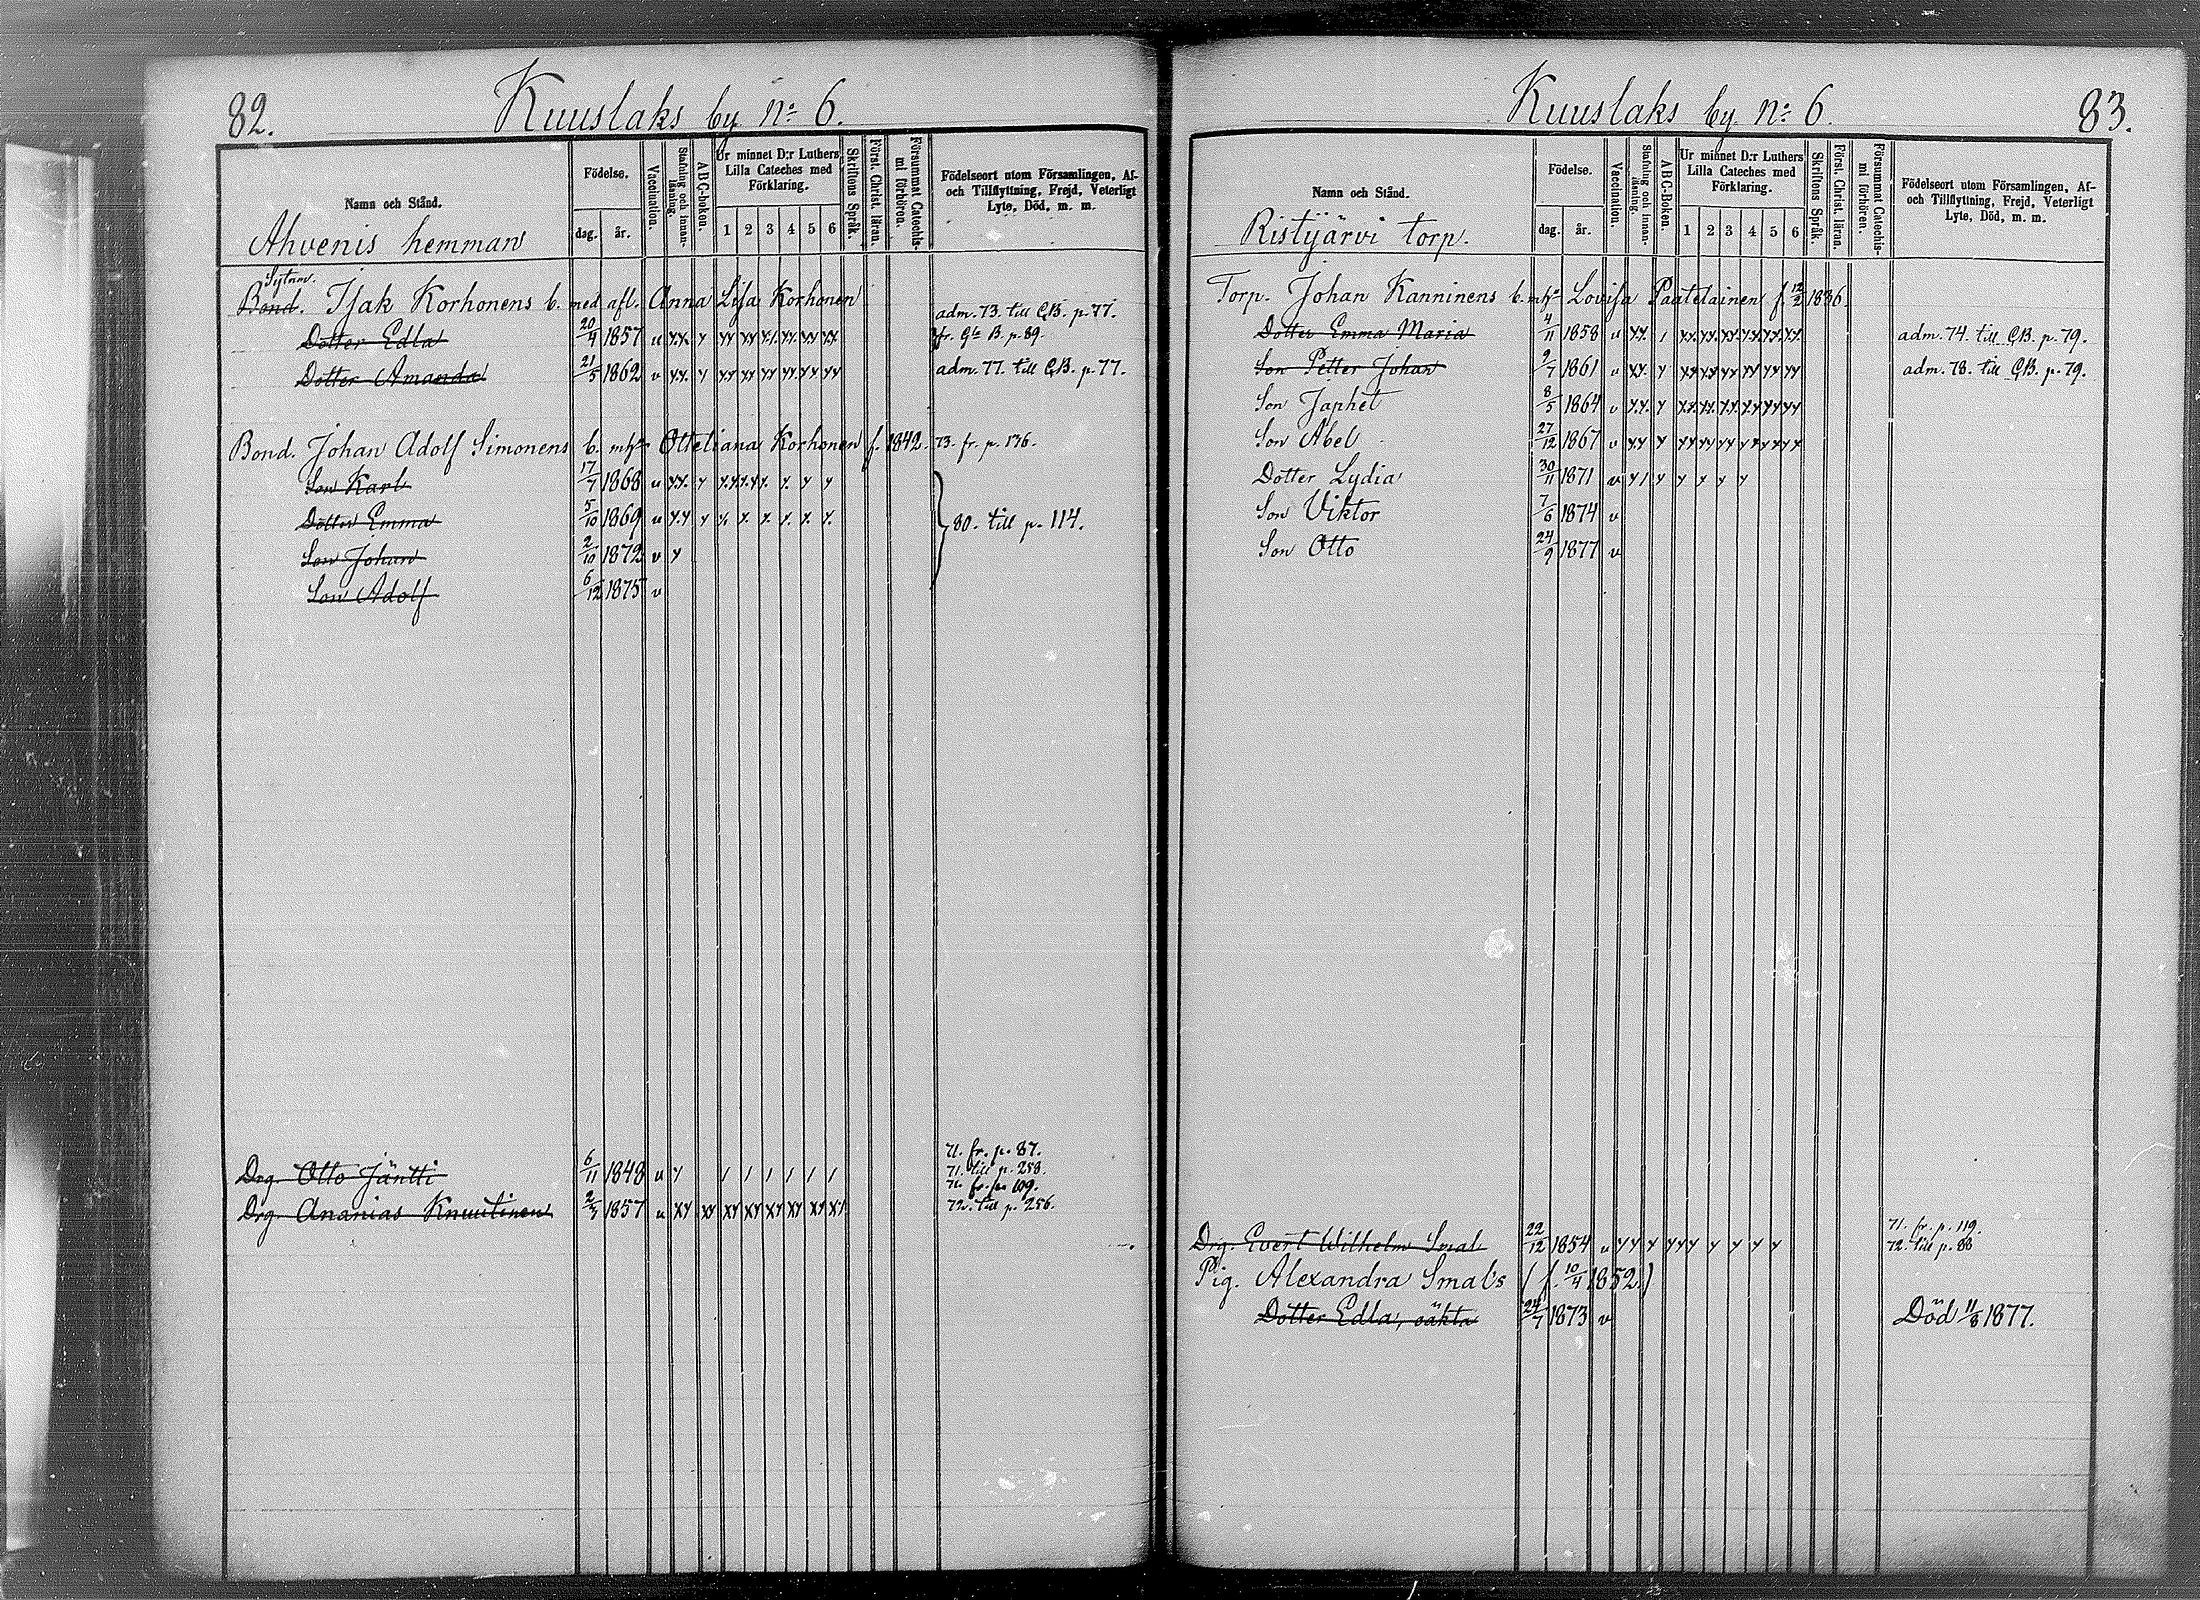 82.
Kuuslaks by No 6.
Namn och Stånd.
Födelse.
dag. år.
Vaccination.
Stafning och innan-läsning.
A B C-boken.
Ur minnet D:r Luthers Lilla Cateches med Förklaring.
1 2 3 4 5 6
Skriftens Språk.
Först. Christ. läran.
Försummat Catechis-mi förhören.
Födelseort utom Församlingen, Af- och Tillflyttning, Frejd, Veterligt Lyte, Död, m. m.
Ahvenis hemman
Sytnm.
Bond. Isak Korhonens b. med afl. Anna Lisa Korhonen
Dotter Edla 20/4 1857 v xx. x xx xx xx xx xx xx adm. 73. till C.B. p. 77.
fr. Gla B. p. 89.
Dotter Amanda 21/5 1862 v xx. x xx xx xx xx xx xx adm. 77. till C.B. p. 77.
Bond. Johan Adolf Simonens b. m. h. Otteliana Korhonen f. 1842. 73. fr. p. 136.
Son Karl 17/7 1868 v xx. x
Dotter Emma 5/10 1869 v xx x x x x x x x 80. till p. 114.
Son Johan 2/10 1872 v x
Son Adolf 6/12 1875 v
71. fr. p. 87.
Drg. Otto Jäntti 6/11 1848 v x / / / / / / 71. till p. 258.
71. fr. p. 109.
Drg. Ananias Knuutinen 2/3 1857 v xx xx xx xx xx xx xx xx 72. till p. 256.
Kuuslaks by No 6.
83.
Namn och Stånd.
Födelse.
dag. år.
Vaccination.
Stafning och innan-läsning.
A B C-Boken.
Ur minnet D:r Luthers Lilla Cateches med Förklaring.
1 2 3 4 5 6
Skriftens Språk.
Först. Christ. läran.
Försummat Catechis-mi förhören.
Födelseort utom Församlingen, Af- och Tillflyttning, Frejd, Veterligt Lyte, Död, m. m.
Ristijärvi torp.
Torp. Johan Kanninens b. m. h. Lovisa Paatelainen f. 12/2 1836.
Dotter Emma Maria 4/11 1858 v xx. / xx. xx. xx. xx. xx. xx. adm. 74. till C.B. p. 79.
Son Petter Johan 9/7 1861 v xx. x xx xx xx xx xx xx adm. 78. till C.B. p. 79.
Son Japhet 8/5 1864 v xx. x xx. xx. xx. xx xx xx
Son Abel 27/12 1867 v xx x xx xx xx xx xx xx
Dotter Lydia 30/11 1871 v x/ x x x x x
Son Viktor 7/6 1874 v
Son Otto 24/9 1877 v
71. fr. p. 119.
Drg. Evert Wilhelm Smal 22/12 1854 v xx x xxx x x x x 72. till p. 88
Pig. Alexandra Smal's (f. 10/4 1852)
Dotter Edla, oäkta 24/7 1873 v Död 11/8 1877.